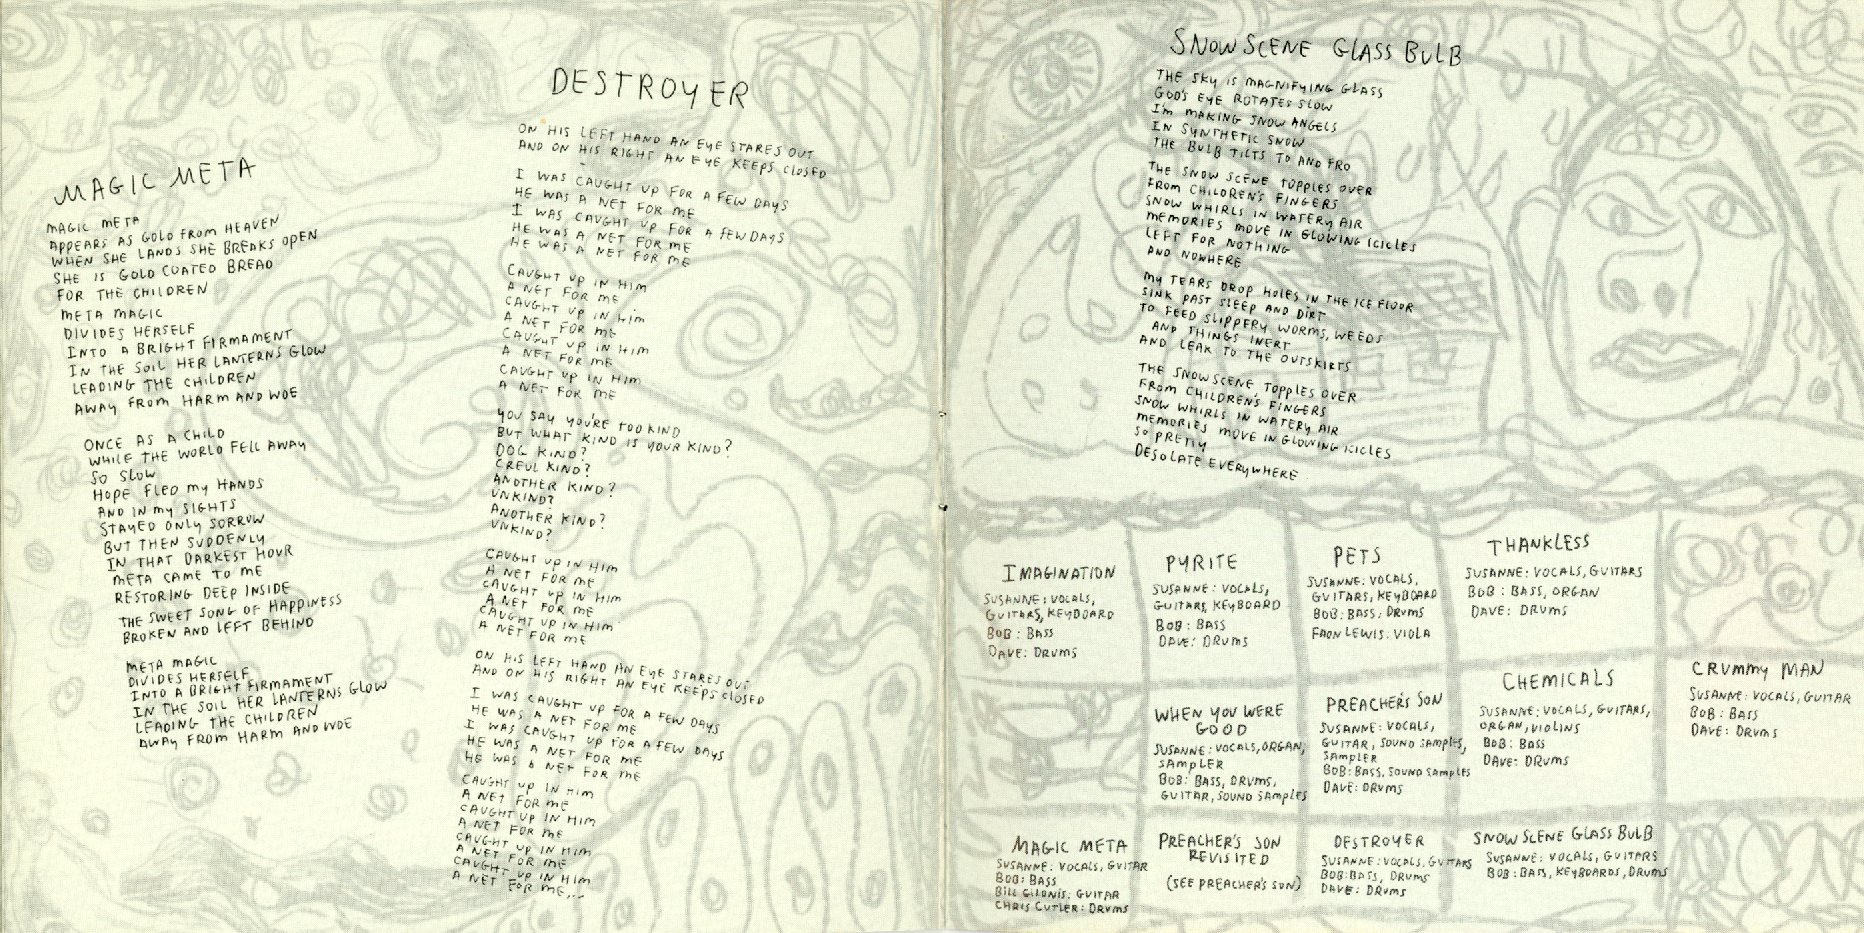 MAGIC META
MAGIC META
APPEARS AS GOLD FROM HEAVEN
WHEN SHE LANDS SHE BREAKS OPEN
SHE IS GOLD COATED BREAD
FOR THE CHILDREN
META MAGIC
DIVIDES HERSELF
INTO A BRIGHT FIRMAMENT
IN THE SOIL HER LANTERNS GLOW
LEADING THE CHILDREN
AWAY FROM HARM AND WOE
ONCE AS A CHILD
WHILE THE WORLD FELL AWAY
SO SLOW
HOPE FLED MY HANDS
AND IN MY SIGHTS
STAYED ONLY SORROW
BUT THEN SUDDENLY
IN THAT DARKEST HOUR
META CAME TO ME
RESTORING DEEP INSIDE
THE SWEET SONG OF HAPPINESS
BROKEN AND LEFT BEHIND
META MAGIC
DIVIDES HERSELF
INTO A BRIGHT FIRMAMENT
IN THE SOIL HER LANTERNS GLOW
LEADING THE CHILDREN
AWAY FROM HARM AND WOE
DESTROYER
ON HIS LEFT HAND AN EYE STARES OUT
AND ON HIS RIGHT AN EYE KEEPS CLOSED
I WAS CAUGHT UP FOR A FEW DAYS
HE WAS A NET FOR ME
I WAS CAUGHT UP FOR A FEW DAYS
HE WAS A NET FOR ME
HE WAS A NET FOR ME
CAUGHT UP IN HIM
A NET FOR ME
CAUGHT UP IN HIM
A NET FOR ME
CAUGHT UP IN HIM
A NET FOR ME
CAUGHT UP IN HIM
A NET FOR ME
YOU SAY YOU'RE TOO KIND
BUT WHAT KIND IS YOUR KIND?
DOG KIND?
CREUL KIND?
ANOTHER KIND?
UNKIND?
ANOTHER KIND?
UNKIND?
CAUGHT UP IN HIM
A NET FOR ME
CAUGHT UP IN HIM
A NET FOR ME
CAUGHT UP IN HIM
A NET FOR ME
ON HIS LEFT HAND AN EYE STARES OUT
AND ON HIS RIGHT AN EYE KEEPS CLOSED
I WAS CAUGHT UP FOR A FEW DAYS
HE WAS A NET FOR ME
I WAS CAUGHT UP FOR A FEW DAYS
HE WAS A NET FOR ME
HE WAS A NET FOR ME
CAUGHT UP IN HIM
A NET FOR ME
CAUGHT UP IN HIM
A NET FOR ME
CAUGHT UP IN HIM
A NET FOR ME
CAUGHT UP IN HIM
A NET FOR ME...
SNOW SCENE GLASS BULB
THE SKY IS MAGNIFYING GLASS
GOD'S EYE ROTATES SLOW
I'M MAKING SNOW ANGELS
IN SYNTHETIC SNOW
THE BULB TILTS TO AND FRO
THE SNOW SCENE TOPPLES OVER
FROM CHILDREN'S FINGERS
SNOW WHIRLS IN WATERY AIR
MEMORIES MOVE IN GLOWING ICICLES
LEFT FOR NOTHING
AND NOWHERE
MY TEARS DROP HOLES IN THE ICE FLOOR
SINK PAST SLEEP AND DIRT
TO FEED SLIPPERY WORMS, WEEDS
AND THINGS INERT
AND LEAK TO THE OUTSKIRTS
THE SNOW SCENE TOPPLES OVER
FROM CHILDREN'S FINGERS
SNOW WHIRLS IN WATERY AIR
MEMORIES MOVE IN GLOWING ICICLES
SO PRETTY
DESOLATE EVERYWHERE
IMAGINATION
SUSANNE: VOCALS,
GUITARS, KEYBOARD
BOB: BASS
DAVE: DRUMS
PYRITE
SUSANNE: VOCALS,
GUITARS, KEYBOARD
BOB: BASS
DAVE: DRUMS
PETS
SUSANNE: VOCALS,
GUITARS, KEYBOARD
BOB: BASS, DRUMS
FAON LEWIS: VIOLA
THANKLESS
SUSANNE: VOCALS, GUITARS
BOB: BASS, ORGAN
DAVE: DRUMS
WHEN YOU WERE
GOOD
SUSANNE: VOCALS, ORGAN,
SAMPLER
BOB: BASS, DRUMS,
GUITAR, SOUND SAMPLES
PREACHER'S SON
SUSANNE: VOCALS,
GUITAR, SOUND SAMPLES,
SAMPLER
BOB: BASS, SOUND SAMPLES
DAVE: DRUMS
CHEMICALS
SUSANNE: VOCALS, GUITARS,
ORGAN, VIOLINS
BOB: BASS
DAVE: DRUMS
CRUMMY MAN
SUSANNE: VOCALS, GUITAR
BOB: BASS
DAVE: DRUMS
MAGIC META
SUSANNE: VOCALS, GUITAR
BOB: BASS
BILL GILONIS: GUITAR
CHRIS CUTLER: DRUMS
PREACHER'S SON
REVISITED
(SEE PREACHER'S SON)
DESTROYER
SUSANNE: VOCALS, GUITARS
BOB: BASS, DRUMS
DAVE: DRUMS
SNOW SCENE GLASS BULB
SUSANNE: VOCALS, GUITARS
BOB: BASS, KEYBOARDS, DRUMS